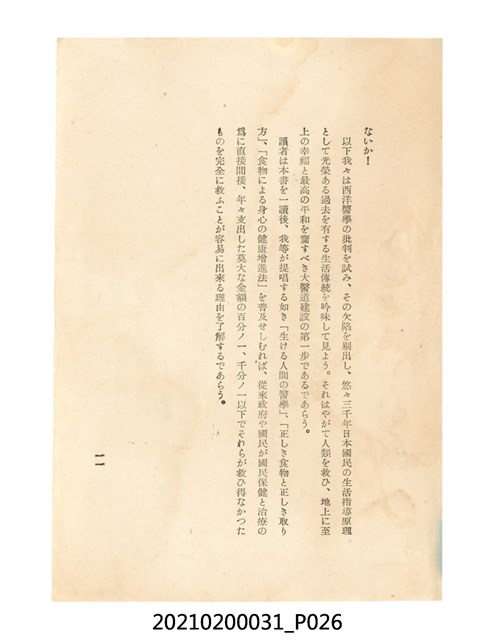 ないか！
以下我々は西洋醫學の批判を試み、その欠陷を剔出し、悠々三千年日本國民の生活指導原理
として光榮ある過去を有する生活傳統を吟味して見よう。それはやがて人類を救ひ、地上に至
上の幸福と最高の平和を齎すべき大醫道建設の第一步であるであらう。
讀者は本書を一讀後、我等が提唱する如き「生ける人間の醫學」、「正しき食物と正しき取り
方」、「食物による身心の健康增進法」を普及せしむれば、從來政府や國民が國民保健と治療の
爲に直接間接、年々支出した莫大な金額の百分ノ一、千分ノ一以下でそれらが救ひ得なかつた
ものを完全に救ふことが容易に出來る理由を了解するであらう。
一一
20210200031_P026